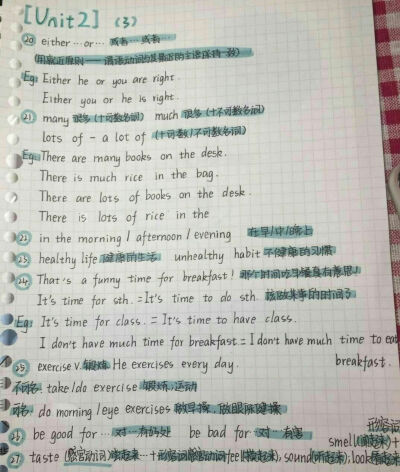 [Unit2] (3)
⑳ either…or… 或者…或者
(用就近原则——谓语动词与其最近的主语保持一致)
Eg: Either he or you are right.
Either you or he is right.
㉑ many 很多(十可数名词) much 很多(十不可数名词)
lots of - a lot of (十可数/不可数名词)
Eg: There are many books on the desk.
There is much rice in the bag.
There are lots of books on the desk.
There is lots of rice in the
㉒ in the morning / afternoon / evening 在早/中/晚上
㉓ healthy life 健康的生活 unhealthy habit 不健康的习惯
㉔ That's a funny time for breakfast! 那个时间吃早餐真有意思!
It's time for sth. = It's time to do sth. 该做某事的时间了
Eg: It's time for class. = It's time to have class.
I don't have much time for breakfast = I don't have much time to eat
breakfast.
㉕ exercise v. 锻炼 He exercises every day.
不可名: take/do exercise 锻炼,运动
可名: do morning/eye exercises 做早操、做眼保健操
㉖ be good for… 对…有好处 be bad for… 对…有害
㉗ taste (感官动词) 尝起来…十形容词 感官动词 feel(摸起来), sound(听起来), look(看起来)
smell(闻起来)十
形容词